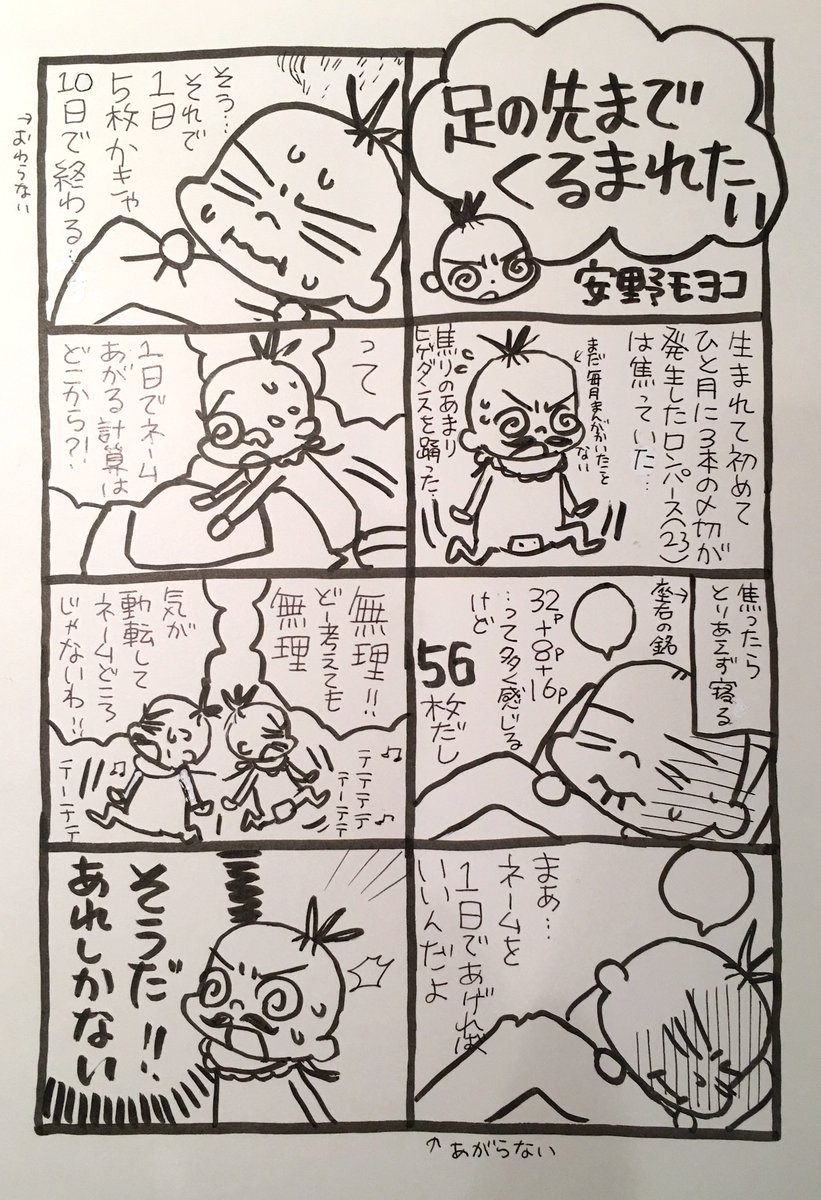 足の先まで
くるまれたい
安野モヨコ
生まれて初めて
ひと月に3本の〆切が
発生したロンパース(23)
は焦っていた…
まだ毎月まんがかいたこと
ない
焦りのあまり
ヒゲダンスを踊った…
焦ったら
とりあえず寝る
座右の銘
32P
+8P
+16P
…って多く感じる
けど
56
枚だし
まあ…
ネームを
1日であげれば
いいんだよ
↑あがらない
そう…
それで
1日
5枚かきゃ
10日で終わる…
→おわらない
って
1日でネーム
あがる計算は
どこから?!
無理!!
どー考えても
無理
気が
動転して
ネームどころ
じゃないわ!!
♪テテテテ
テーテテ♪
♪
テーテテ
そうだ!!
あれしかない